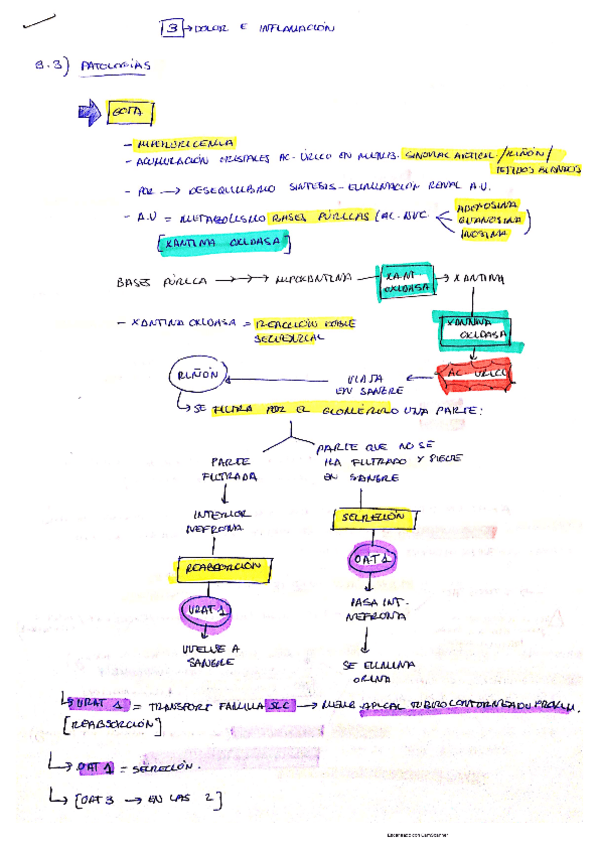 3 → DOLOR E INFLAMACIÓN
3.3) PATOLOGÍAS
GOTA
- HIPERURICEMIA
- ACUMULACIÓN CRISTALES AC. ÚRICO EN MEMB. SINOVIAL ARTICUL. / RIÑÓN /
TEJIDOS BLANDOS
- POR → DESEQUILIBRIO SÍNTESIS - ELIMINACIÓN RENAL A.U.
- A.U = METABOLISMO BASES PÚRICAS (AC. NUC. ADENOSINA
GUANOSINA
INOSINA )
[XANTINA OXIDASA]
BASES PÚRICA → → → HIPOXANTINA → XANT. OXIDASA → XANTINA
XANTINA OXIDASA
- XANTINA OXIDASA = REACCIÓN DOBLE
SECUENCIAL
AC. ÚRICO
RIÑÓN ← VIAJA
EN SANGRE
↳ SE FILTRA POR EL GLOMÉRULO UNA PARTE:
PARTE
FILTRADA
↓
INTERIOR
NEFRONA
REABSORCIÓN
URAT-1
↓
VUELVE A
SANGRE
PARTE QUE NO SE
HA FILTRADO Y SIGUE
EN SANGRE
SECRECIÓN
OAT 1
↓
PASA INT.
NEFRONA
↓
SE ELIMINA
ORINA
↳ URAT 1 = TRANSPORT FAMILIA SLC → MEMB. APICAL TUBULO CONTORNEADO PROXIM.
[REABSORCIÓN]
↳ OAT 1 = SECRECIÓN.
↳ [OAT 3 → EN LAS 2]
Escaneado con CamScanner